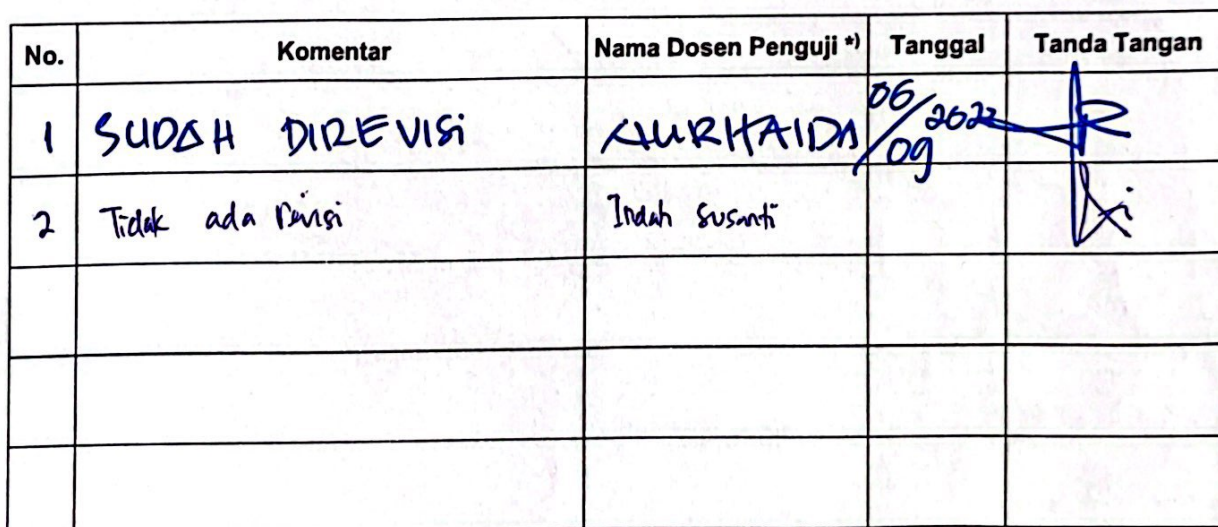 No. Komentar Nama Dosen Penguji *) Tanggal Tanda Tangan
1 SUDAH DIREVISI NURHAIDA 06/09 2022
2 Tidak ada revisi Indah Susanti